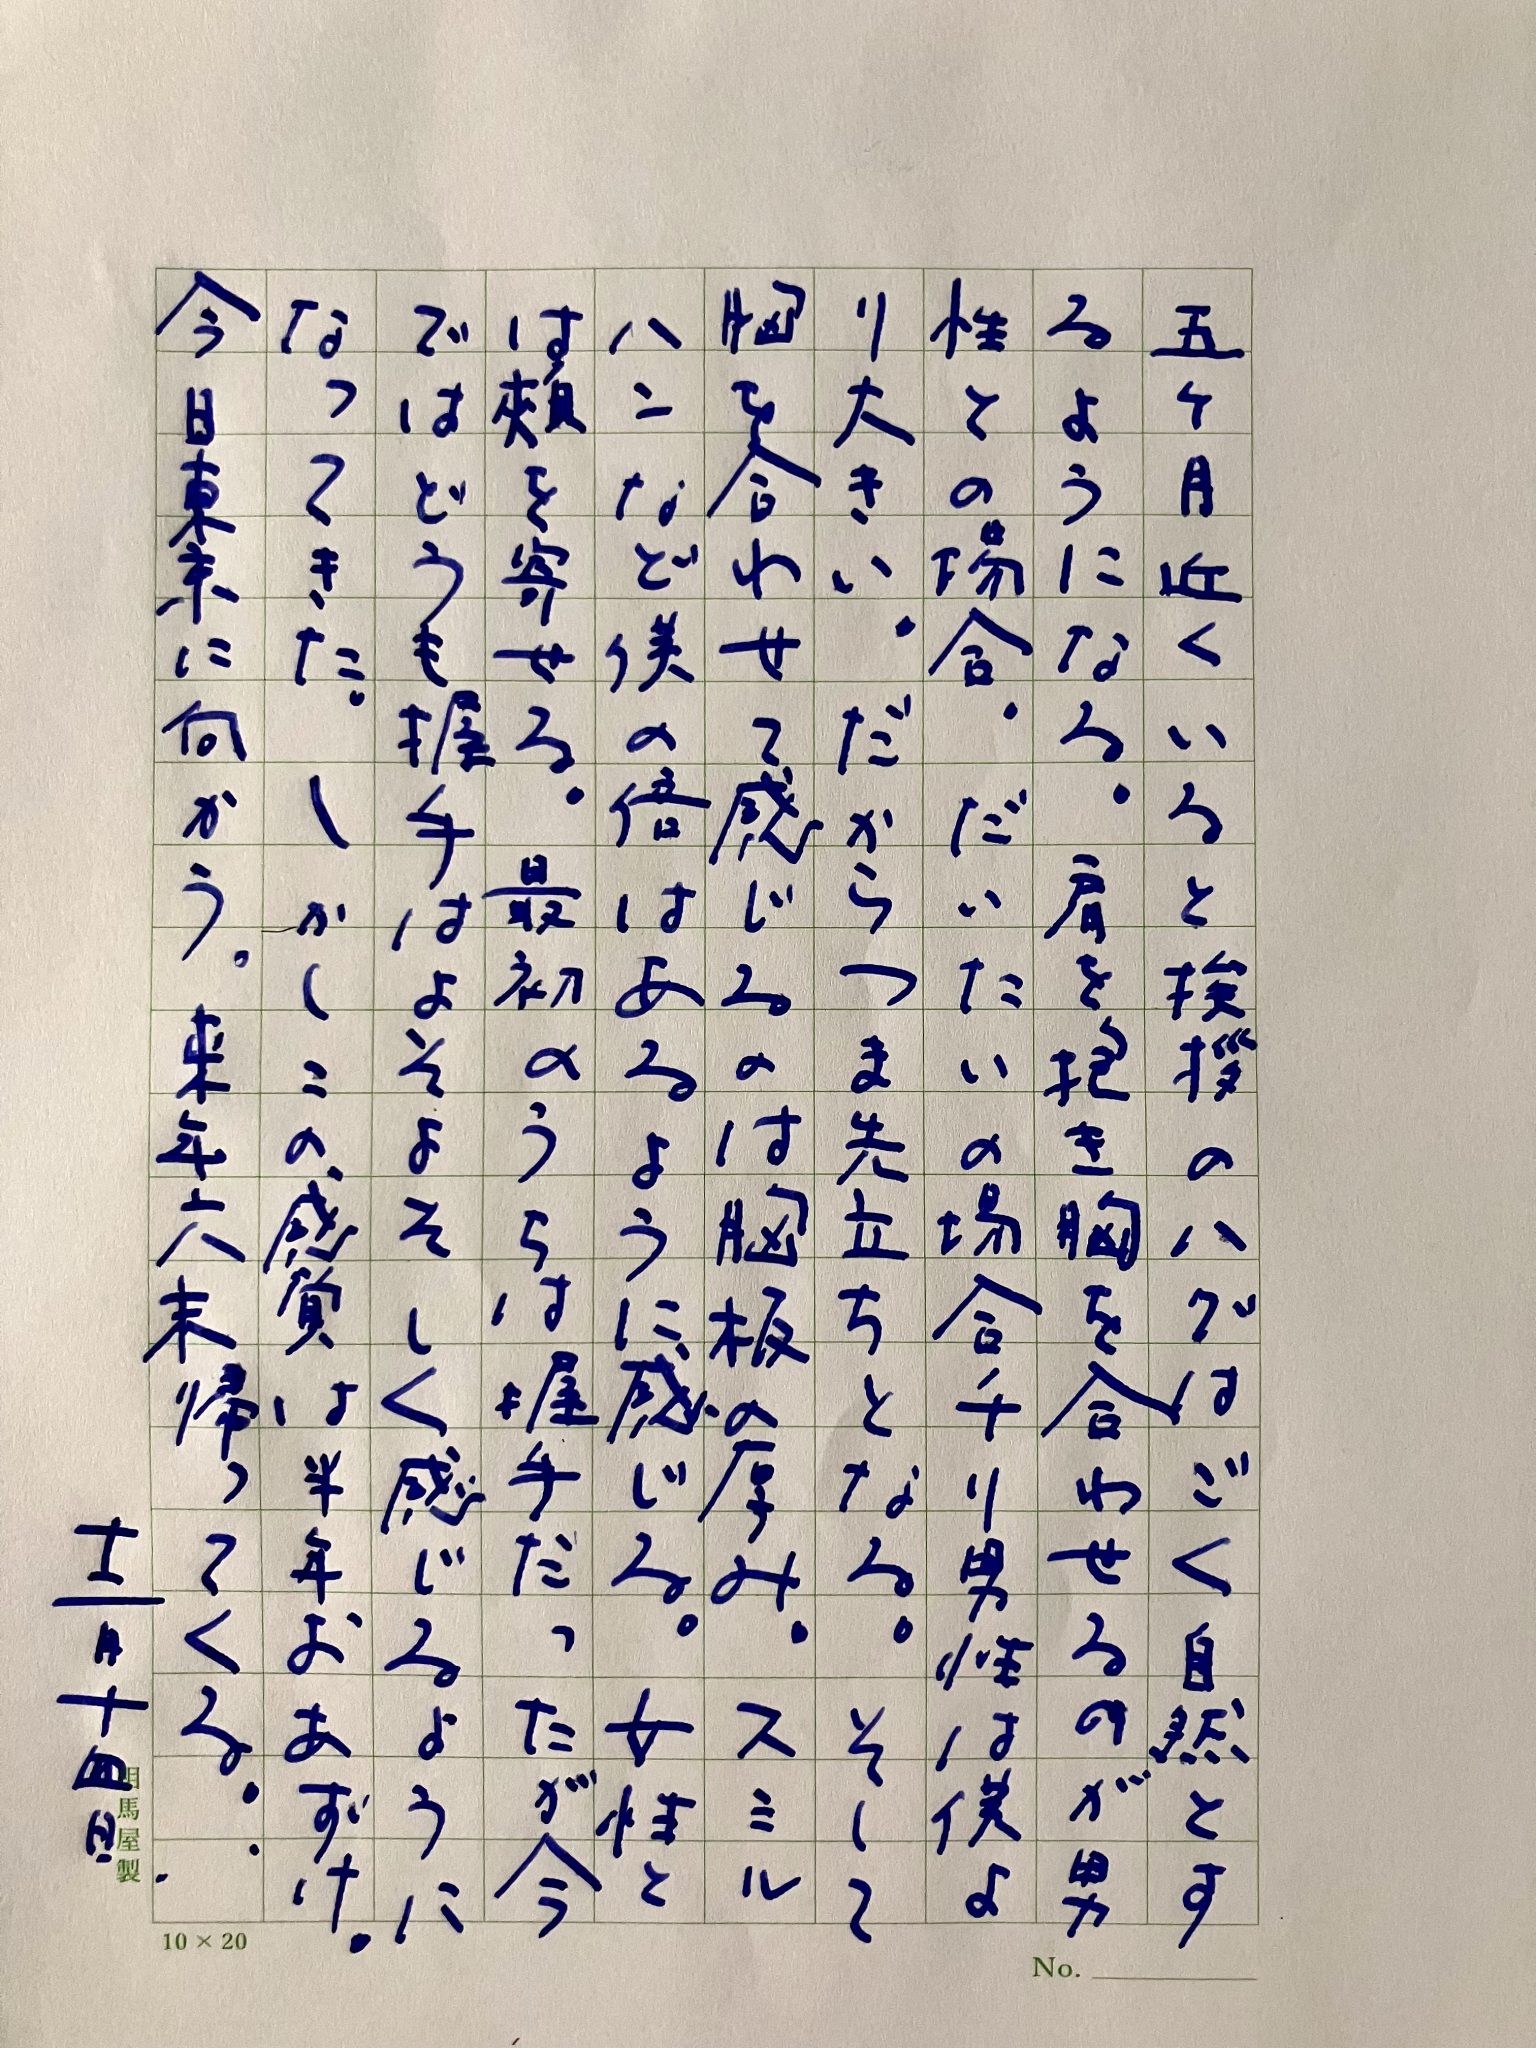 五ヶ月近くいると挨拶のハグはごく自然とす
るようになる。肩を抱き胸を合わせるのが男
性との場合。だいたいの場合チリ男性は僕よ
り大きい。だからつま先立ちとなる。そして
胸を合わせて感じるのは胸板の厚み。スミル
ハンなど僕の倍はあるように感じる。女性と
は頬を寄せる。最初のうちは握手だったが今
ではどうも握手はよそよそしく感じるように
なってきた。しかしこの感覚は半年おあずけ。
今日東京に向かう。来年六末帰ってくる。
十二月十四日
相馬屋製
10 × 20
No.